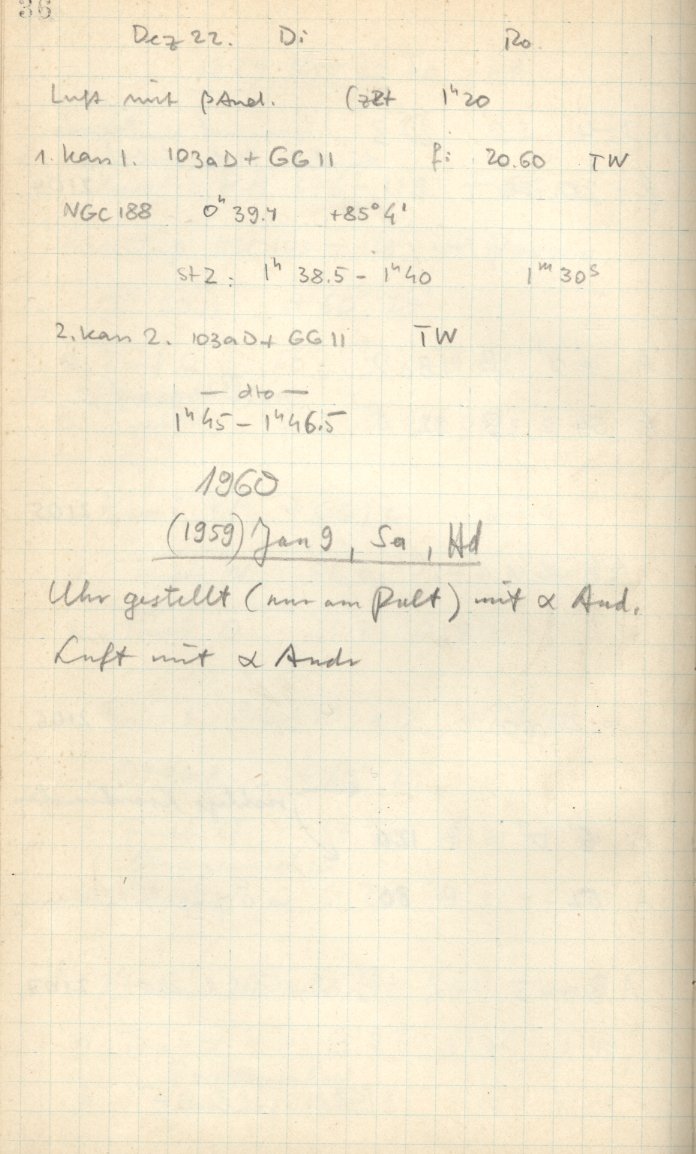 36
Dez 22. Di Ro.
Luft mit β And. (zzt 1ʰ20
1. Kass 1. 103aD + GG11 f: 20.60 TW
NGC 188 0ʰ 39.4 +85° 4'
StZ: 1ʰ 38.5 - 1ʰ40 1ᵐ 30ˢ
2. Kass 2. 103aD + GG11 TW
— dto —
1ʰ45 - 1ʰ46.5
1960
(1959) Jan 9, Sa, Hd
Uhr gestellt (nur am Pult) mit α And.
Luft mit α Andr